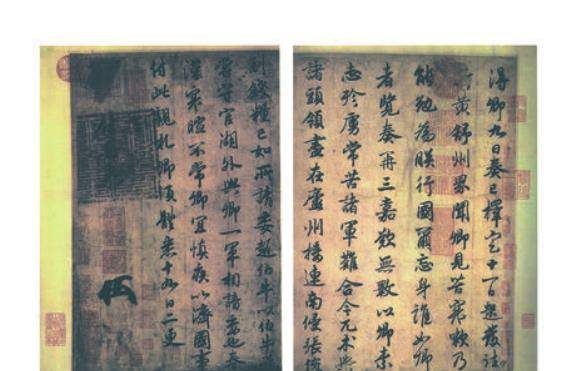 得卿九日奏已擇定十一日起發往
蘄黃舒州界聞卿見苦寒嗽乃
能勉為朕行國爾忘身誰如卿
者覽奏再三嘉歎無斁以卿素
志殄虜常苦諸軍難合今兀朮與
諸頭領盡在廬州接連南侵張俊
副錢糧已如所請委趙伯牛以伯牛
嘗守官湖外與卿一軍相諳妥也春
深寒暄不常卿宜慎疾以濟國事
付此親札卿須體悉十九日二更